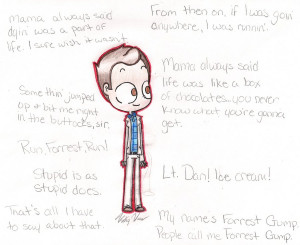 mama always said
dyin was a part of
life. I sure wish it wasn't.
From then on, if I was goin'
anywhere, I was runnin'.
Somethin jumped
up + bit me right
in the buttocks, sir.
Mama always said
life was like a box
of chocolates...you never
know what you're gonna
get.
Run, Forrest, Run!
Stupid is as
stupid does.
Lt. Dan! Ice cream!
That's all I have
to say about that
My name's Forrest Gump.
People call me Forrest Gump.